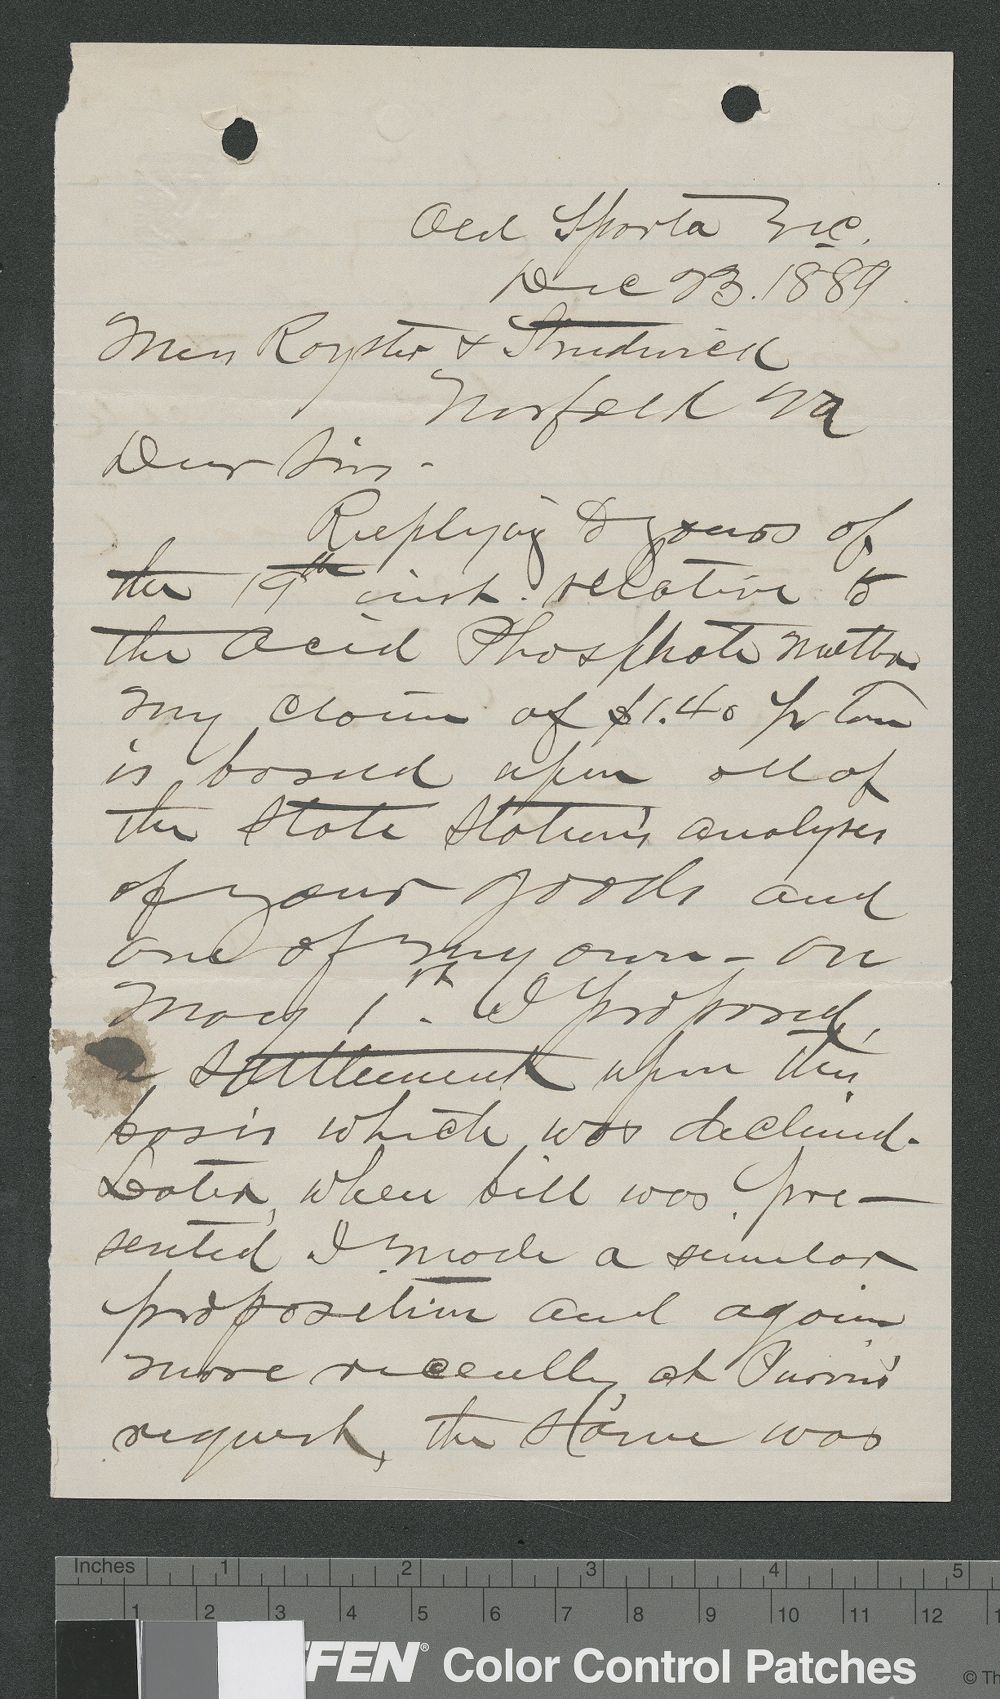 Old Sparta N.C.
Dec 23. 1889.
Mess Royster & Strudwick
Norfolk Va
Dear Sirs-
Replying to yours of
the 19th inst. relative to
the Acid Phosphate matter
my claim of $1.40 pr ton
is based upon all of
the State Station's analyses
of your goods and
one of my own - On
May 1st. I proposed
a settlement upon this
basis which was declined.
Later, when bill was pre-
sented I made a similar
proposition and again
more recently, at Purvis'
request, the same was
Inches 1 2 3 4 5
1 2 3 4 5 6 7 8 9 10 11 12 1
FFEN® Color Control Patches © Th